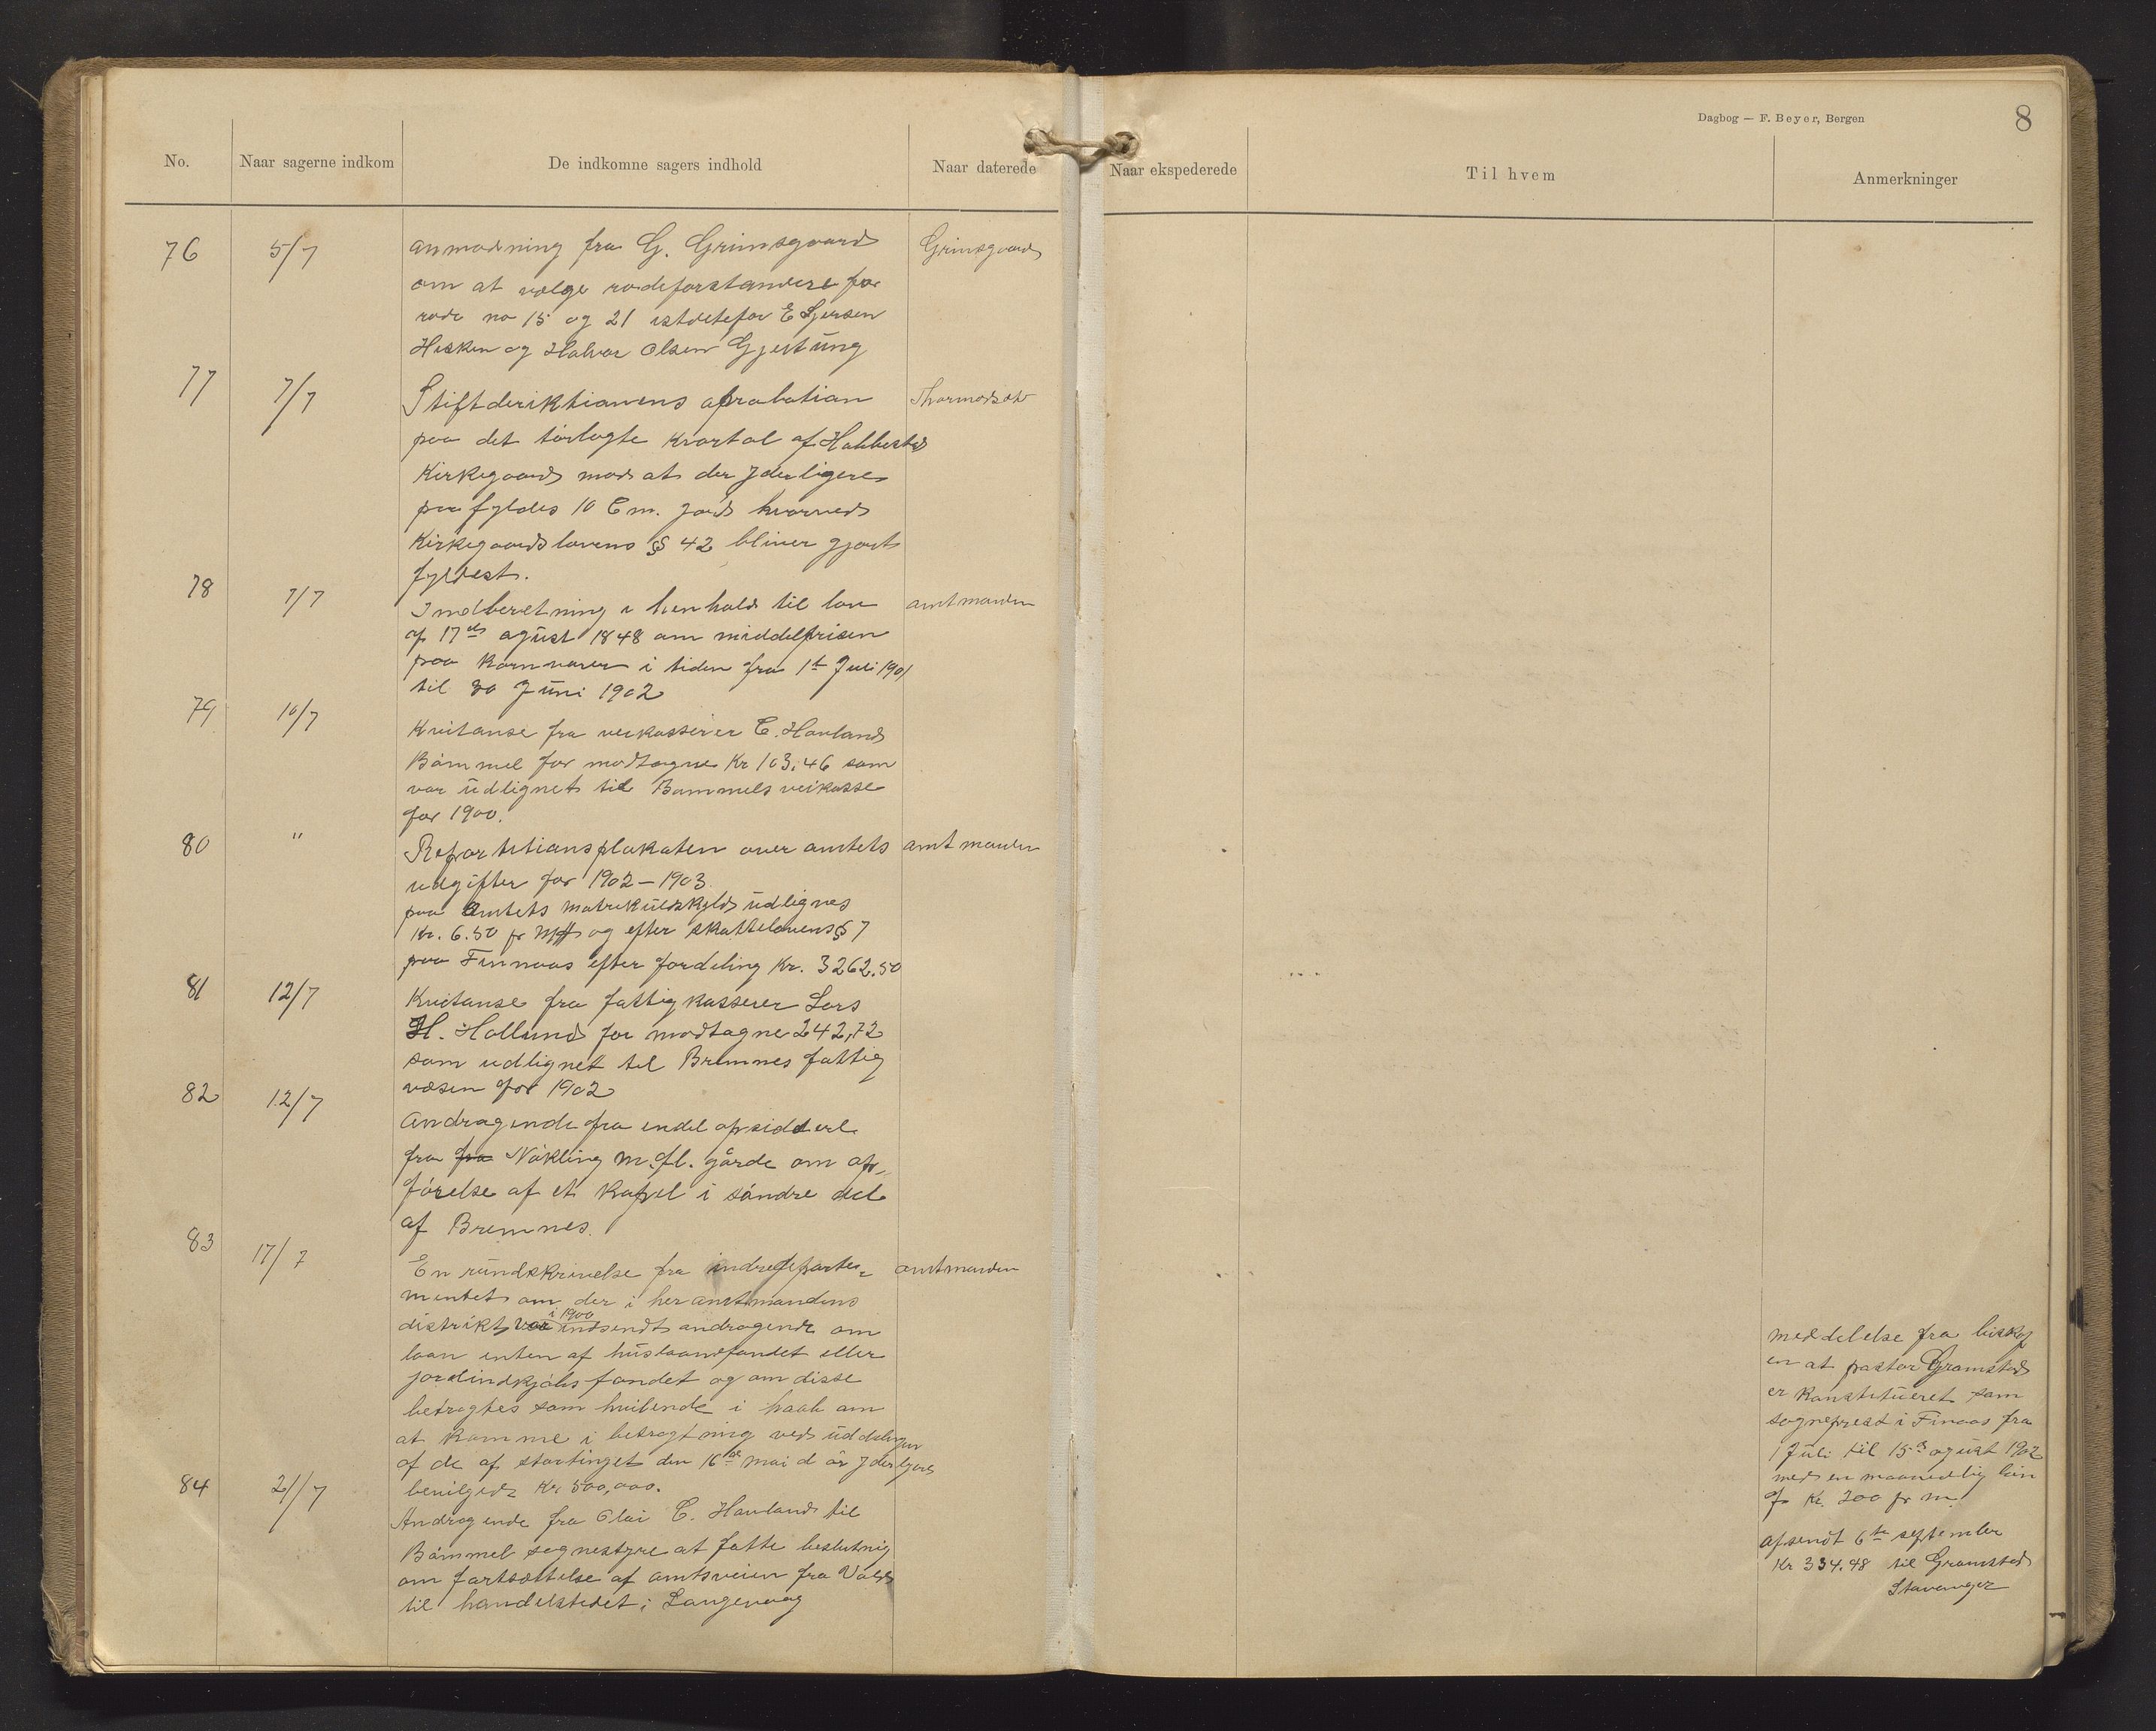 Dagbog — F. Beyer, Bergen
8
No.
Naar sagerne indkom
De indkomne sagers indhold
Naar daterede
Naar ekspederede
Til hvem
Anmerkninger
76 5/7 anmodning fra G. Grimsgaard Grimsgaard
om at vælge rodeforstandere for
rode no 15 og 21 istdetefor E
Hisken og Halvor Olsen
77 7/7 Stiftderiktionens aprobation Thormodsæt
paa det tørlagte kvartal af
Kirkegaard mod at der yderligere
paafyldes 10 Cm. jord hvorved
Kirkegaardslovens § 42 bliver gjort
fyldest.
78 7/7 Indberetning i henhold til lov amtmanden
af 17de agust 1848 om middelprisen
paa kornvarer i tiden fra 1te Juli 1901
til 30 Juni 1902
79 10/7 Kvitanse fra veikasserer C. Havland
Bømmel for modtagne Kr 103,46 som
var udlignet til Bømmels veikasse
for 1900.
80 " Repartitionsplakaten over amtets amtmanden
udgifter for 1902—1903
paa Amtets matrikulskyld udlignes
Kr. 6.50 pr og efter skattelovens § 7
paa Finnaas efter fordeling Kr. 3262.50
81 12/7 Kvitanse fra fattigkasserer Lars
H. Hollund for modtagne 242,72
som udlignet til Bremnes fattig
væsen for 1902
82 12/7 Andragende fra endel opsiddere
fra fra Nøkling m.fl. gårde om op-
førelse af et kapel i søndre del
af Bremnes.
83 17/7 En rundskrivelse fra indredeparte= amtmanden
mentet om der i her amtmandens
distrikt var i 1900 indsendt andragende om
laan enten af huslaanfondet eller
jordindkjøbsfondet og om disse
betragtes som hvilende i haab om
at komme i betragtning ved uddelingen
af de af stortinget den 16de mai d år yderligere
bevilgede Kr 500,000.
84 21/7 Andragende fra Olai C. Havland til
Bømmel sognestyre at fatte beslutnig
om fortsættelse af amtsveien fra Vold
til handelstedet i Langevaag
meddelelse fra biskop
en at pastor Gramstad
er konstitueret som
sogneprest i Finaas fra
1 Juli til 15de agust 1902
med en maanedlig løn
af Kr. 200 pr m.
afsendt 6te september
Kr 334.48 til Gramstad
Stavanger